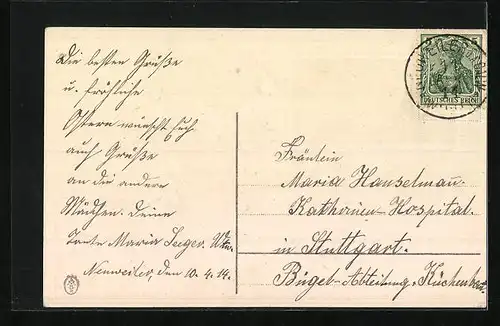 Die besten Grüße
u. fröhliche
Ostern wünscht Euch
auch Grüße
an die andere
Mädchen. Deine
Tante Maria Seeger.
Neuweiler, den 10.4.14.
DEUTSCHES REICH
Fräulein
Maria Hanselmann.
Katharinen-Hospital.
in Stuttgart.
Bügel-Abteilung,